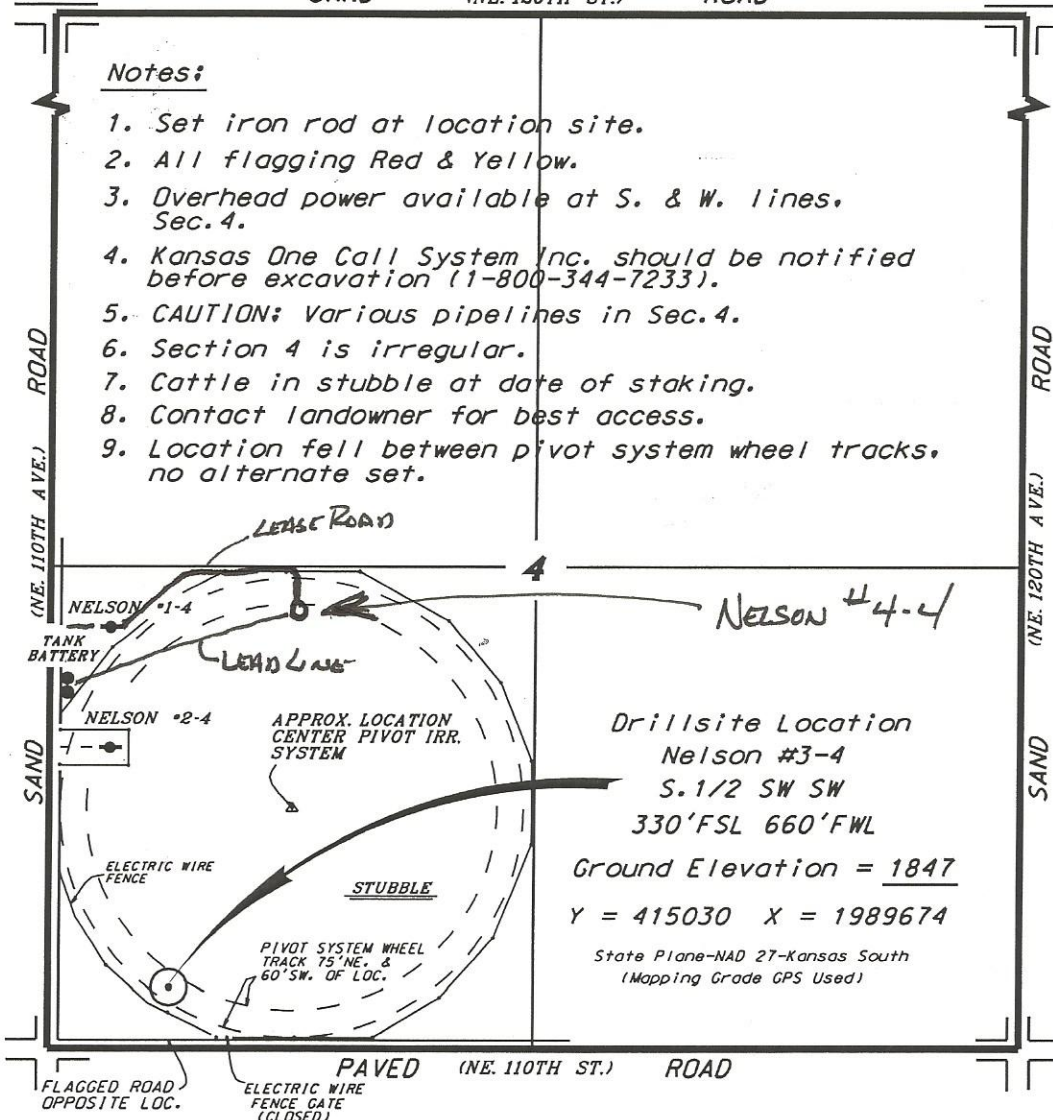 SAND (NE. 120TH ST.) ROAD
Notes:
1. Set iron rod at location site.
2. All flagging Red & Yellow.
3. Overhead power available at S. & W. lines,
Sec. 4.
4. Kansas One Call System Inc. should be notified
before excavation (1-800-344-7233).
5. CAUTION: Various pipelines in Sec. 4.
6. Section 4 is irregular.
7. Cattle in stubble at date of staking.
8. Contact landowner for best access.
9. Location fell between pivot system wheel tracks,
no alternate set.
SAND (NE. 110TH AVE.) ROAD
SAND (NE. 120TH AVE.) ROAD
LEASE ROAD
4
NELSON #1-4
TANK
BATTERY
LEAD LINE
NELSON #4-4
NELSON #2-4
APPROX. LOCATION
CENTER PIVOT IRR.
SYSTEM
Drillsite Location
Nelson #3-4
S.1/2 SW SW
330'FSL 660'FWL
Ground Elevation = 1847
Y = 415030 X = 1989674
State Plane-NAD 27-Kansas South
(Mapping Grade GPS Used)
ELECTRIC WIRE
FENCE
STUBBLE
PIVOT SYSTEM WHEEL
TRACK 75'NE. &
60'SW. OF LOC.
PAVED (NE. 110TH ST.) ROAD
FLAGGED ROAD
OPPOSITE LOC.
ELECTRIC WIRE
FENCE GATE
(CLOSED)